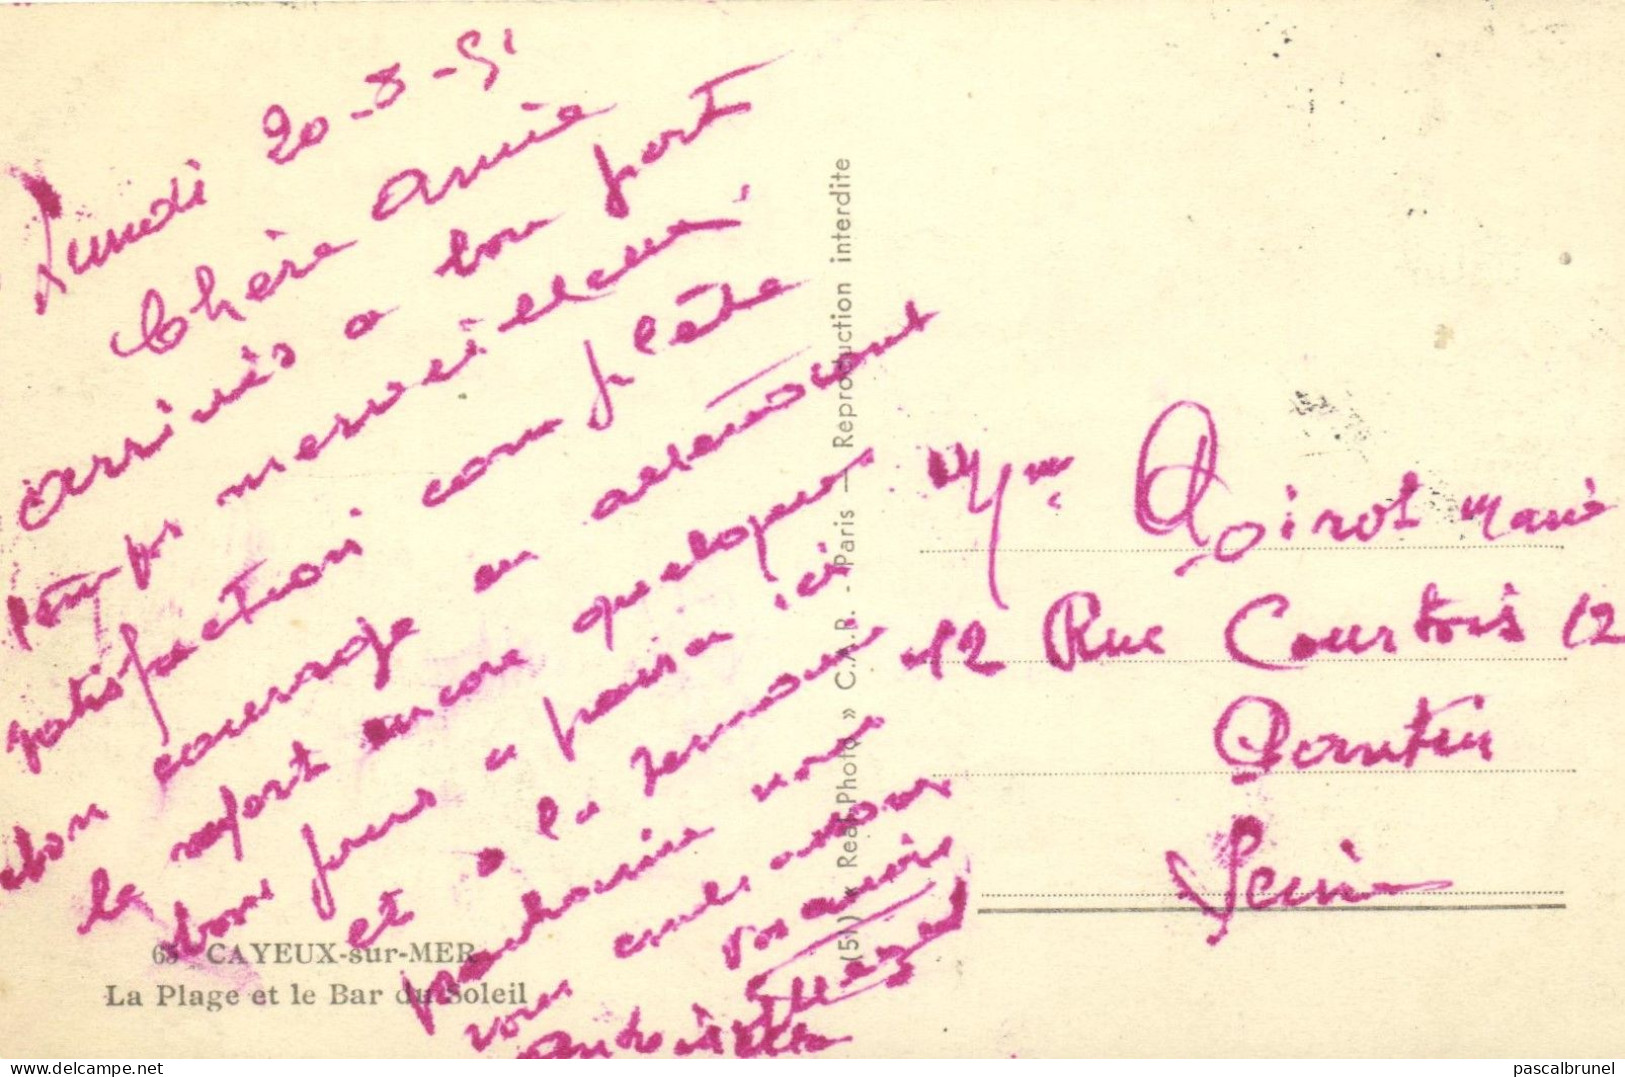 Lundi 20-8-51
Chère Amie
arrivés a bon port
temps merveilleux
satisfaction complète
bon courage en attendant
la refort encore quelques
bons jours a passer ici
et a la semaine
prochaine nous
vous
vos amis
Suzel
Andrée
65 CAYEUX-sur-MER
La Plage et le Bar du Soleil
(5) « Real-Photo » C.A.P. - Paris — Reproduction interdite
Mme Poirot Marie
12 Rue Courtois 12
Pantin
Seine
www.delcampe.net
pascalbrunel